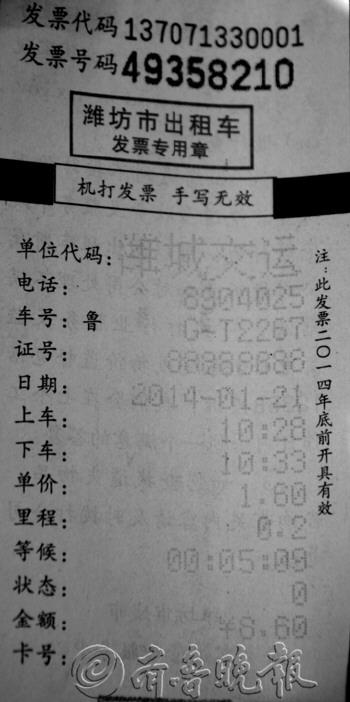 发票代码 137071330001
发票号码 49358210
潍坊市出租车
发票专用章
机打发票 手写无效
单位代码： 潍城交运
电话： 8904025
车号：鲁 G-T2267
证号： 88888688
日期： 2014-01-21
上车： 10:28
下车： 10:33
单价： 1.60
里程： 0.2
等候： 00:05:09
状态： 0
金额： ¥6.60
卡号：
注：此发票二〇一四年底前开具有效
齐鲁晚报